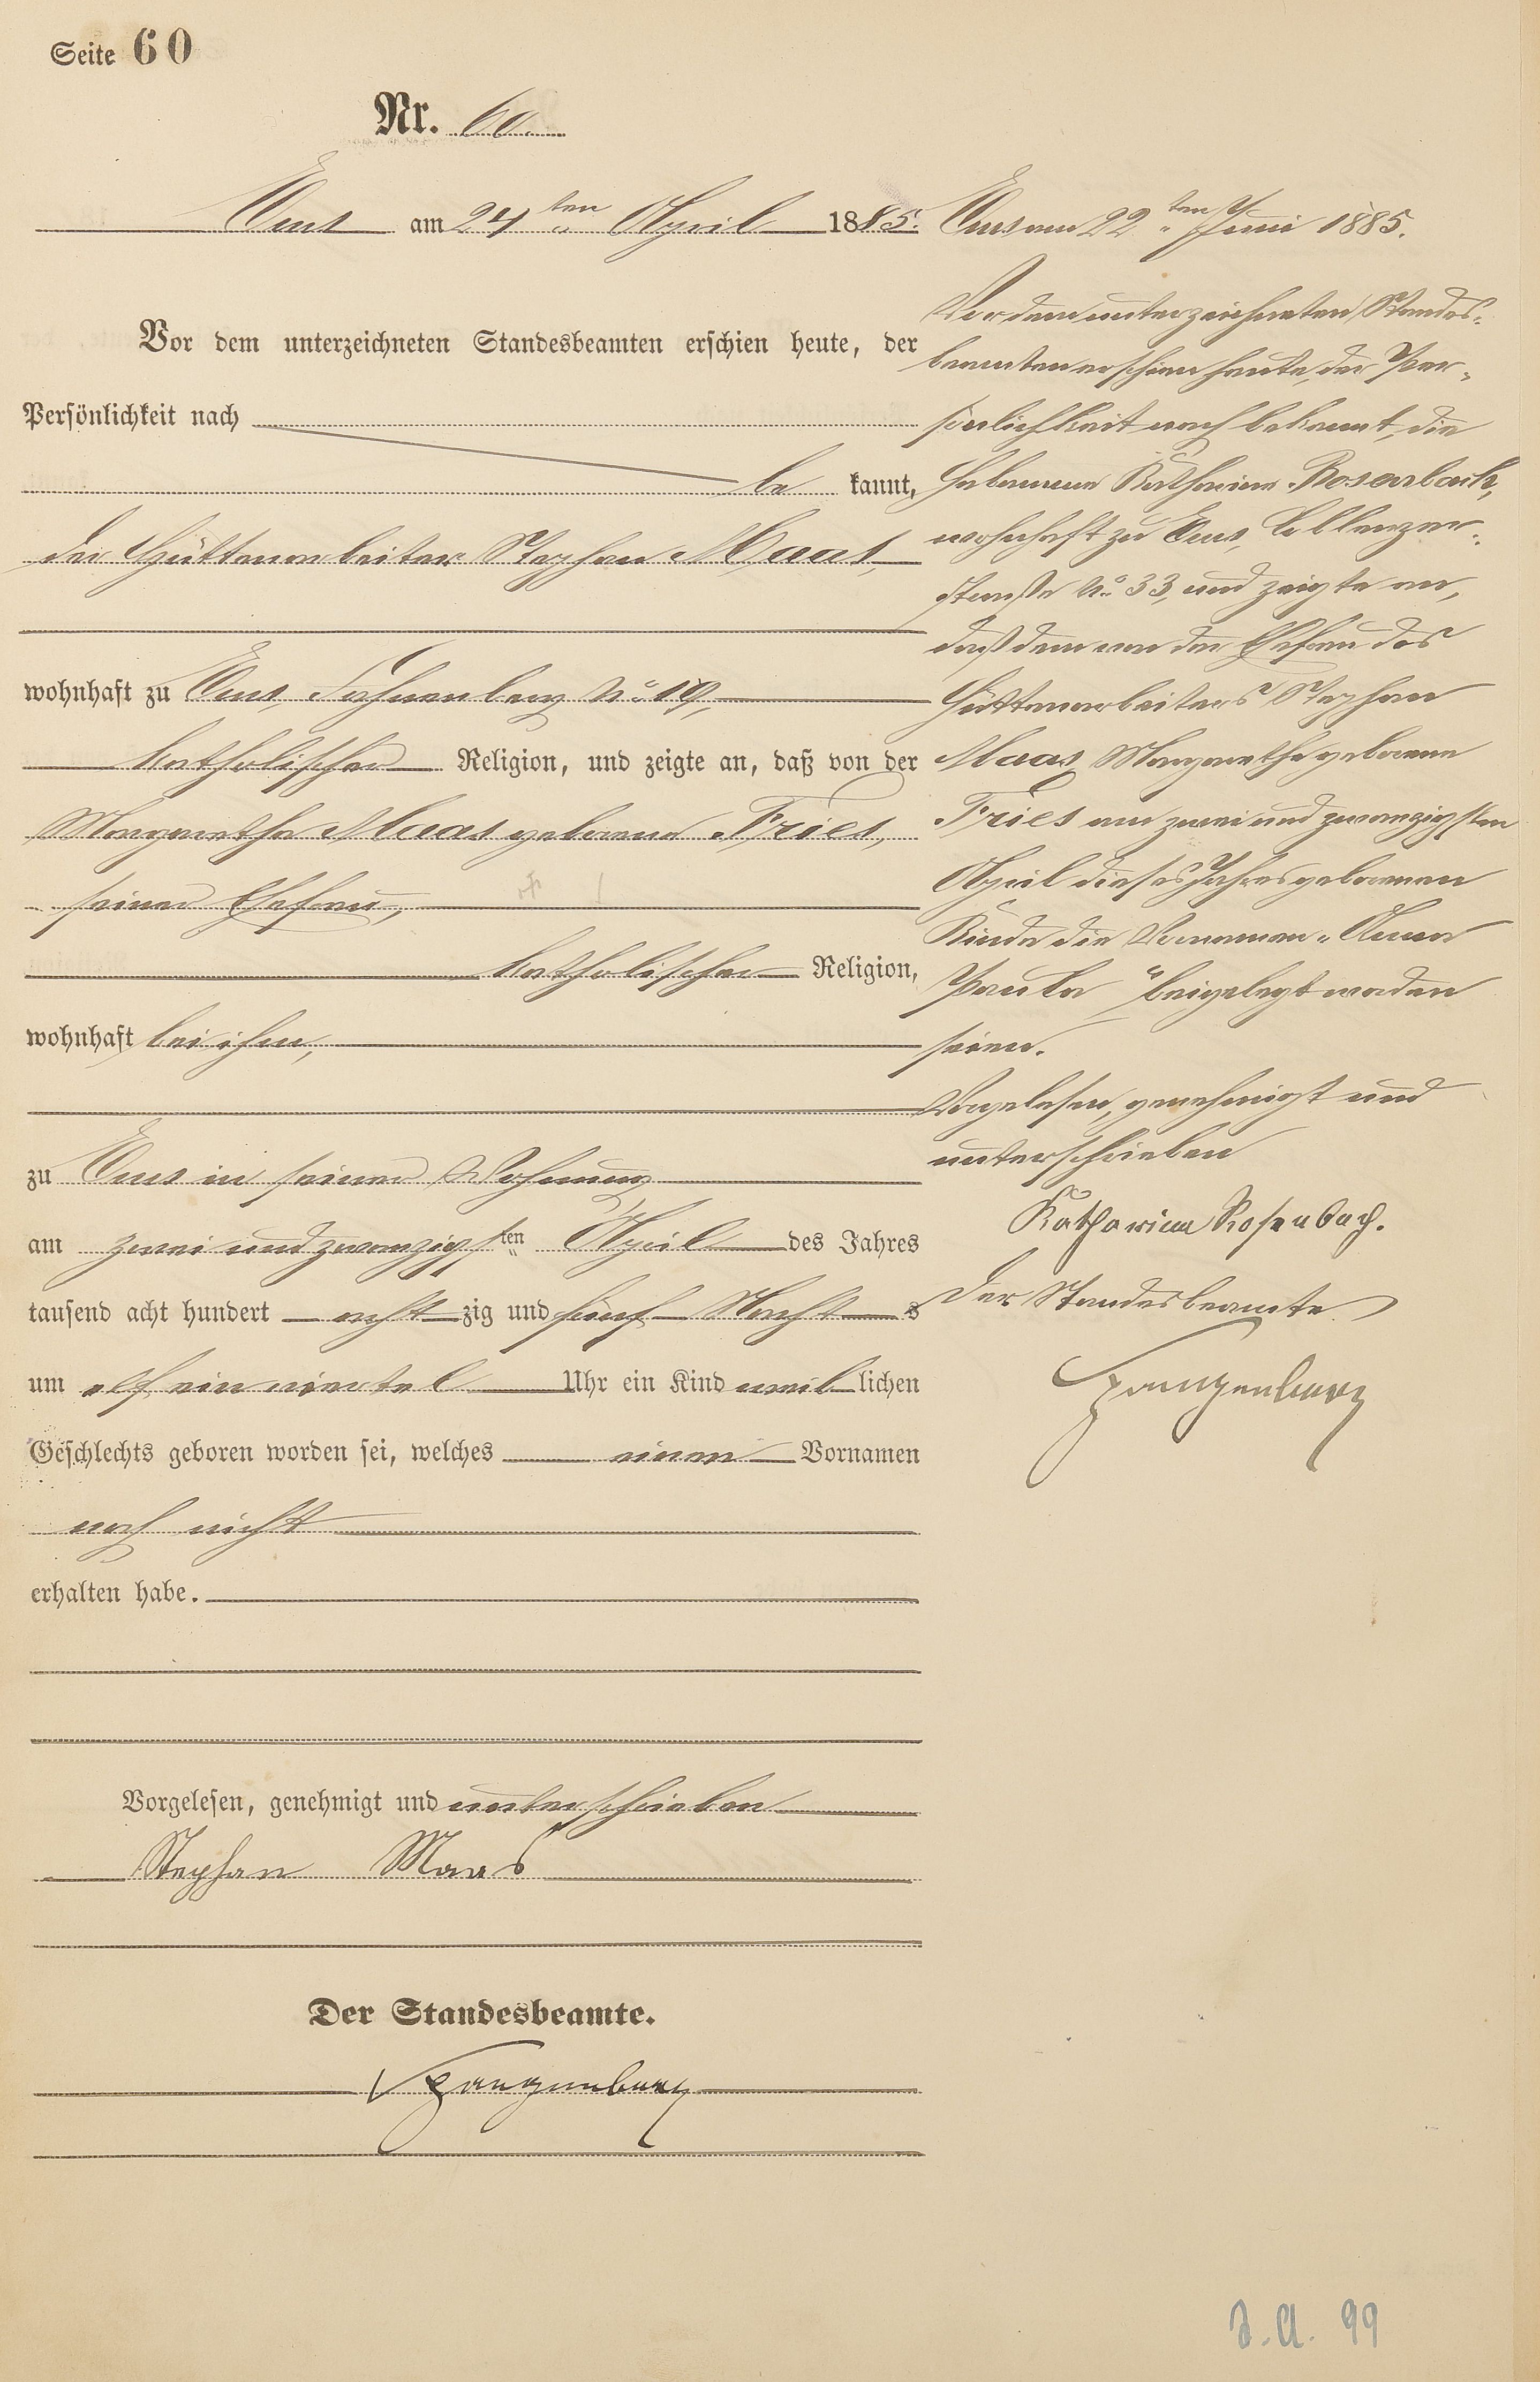 Seite 60
Nr. 60.
Ems am 24ten April 1885.
Vor dem unterzeichneten Standesbeamten erschien heute, der
Persönlichkeit nach
be kannt,
der Hüttenarbeiter Stephan Maas,
wohnhaft zu Ems, Fahnenberg No 19,
katholischer Religion, und zeigte an, daß von der
Margaretha Maas geborene Fries,
seiner Ehefrau,
katholischer Religion,
wohnhaft bei ihm,
zu Ems in seiner Wohnung
am zwei und zwanzigsten April des Jahres
tausend acht hundert acht zig und fünf Nacht s
um elf ein viertel Uhr ein Kind weib lichen
Geschlechts geboren worden sei, welches einen Vornamen
noch nicht
erhalten habe.
Vorgelesen, genehmigt und unterschrieben
Stephan Maas
Der Standesbeamte.
Spangenberg
Ems am 22ten Juni 1885.
Vor dem unterzeichneten Standes-
beamten erschien heute, der Per-
sönlichkeit nach bekannt, die
Hebamme Katharina Rosenbach,
wohnhaft zu Ems, Coblenzer-
straße No. 33, und zeigte an,
daß dem von der Ehefrau des
Hüttenarbeiters Stephan
Maas, Margarethe geborene
Fries am zwei und zwanzigsten
April dieses Jahres geborenen
Kinde die Vornamen „Anna
Paula" beigelegt worden
seien.
Vorgelesen, genehmigt und
unterschrieben
Katharina Rosenbach.
Der Standesbeamte
Spangenberg
J. A. 99